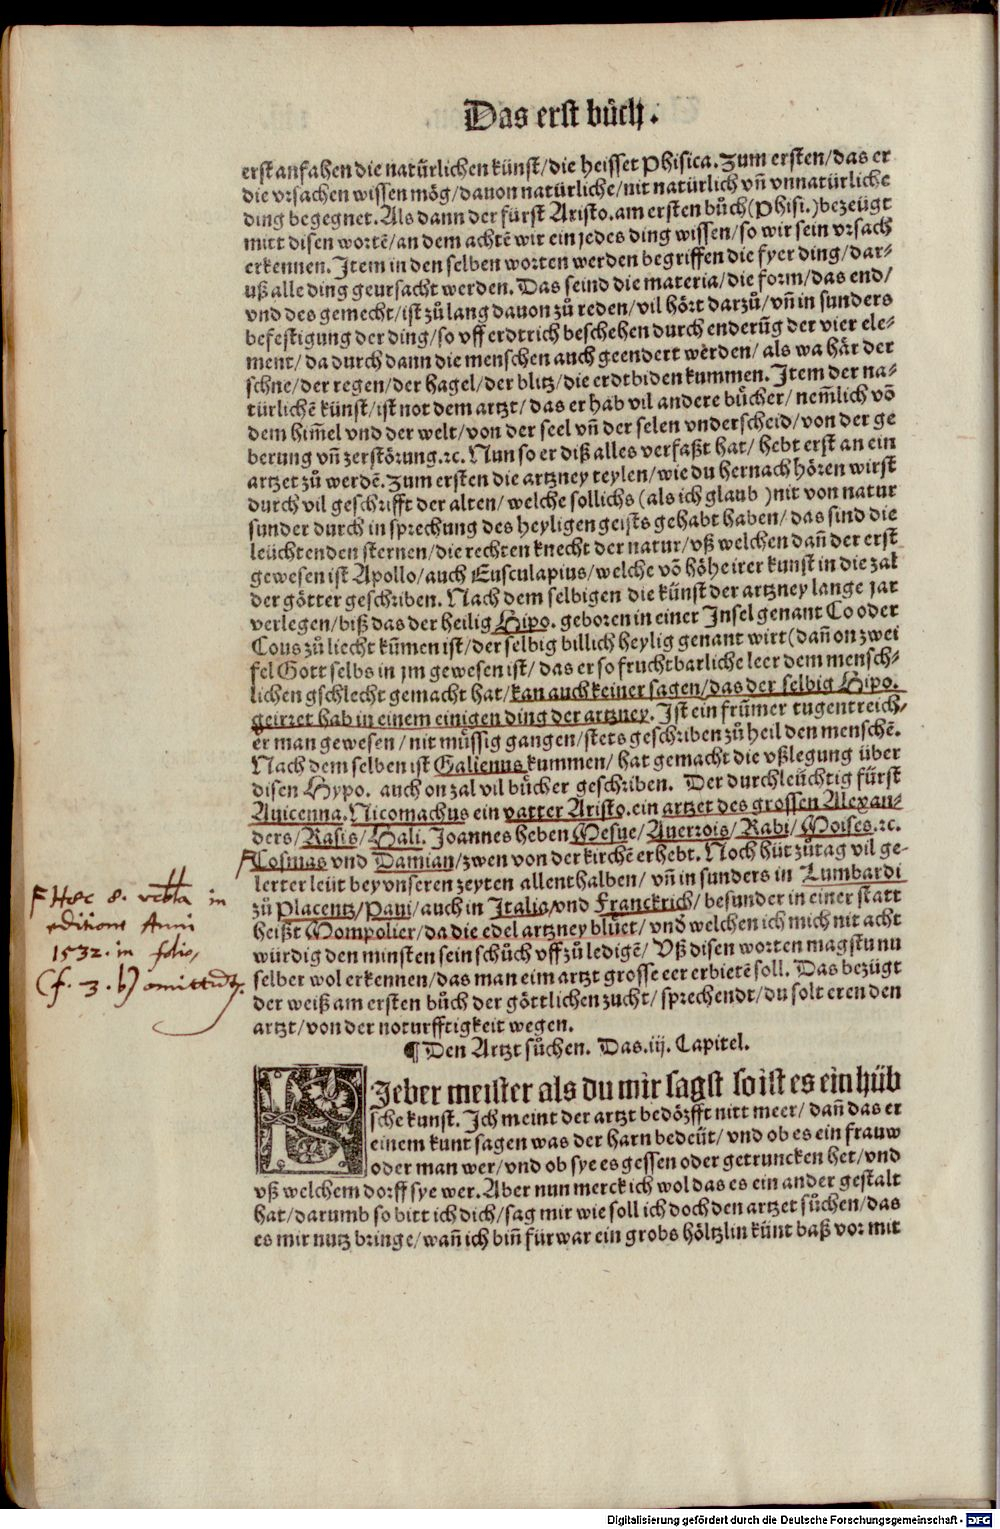 Das erst bůch.
erst anfahen die natürlichen künst/die heisset Phisica. Zum ersten/das er
die vrsachen wissen mög/dauon natürliche/nit natürlich vñ vnnatürliche
ding begegnet. Als dann der fürst Aristo. am ersten bůch (Phisi.) bezeügt
mitt disen wortē/an dem achtē wir ein jedes ding wissen/so wir sein vrsach
erkennen. Item in den selben worten werden begriffen die fyer ding/dar-
uß alle ding geursacht werden. Das seind die materia/die form/das end/
vnd des gemecht/ist zů lang dauon zů reden/vil hört darzů/vñ in sunders
befestigung der ding/so vff erdtrich beschehen durch enderũg der vier ele-
ment/da durch dann die menschen auch geendert werden/als wa här der
schne/der regen/der hagel/der blitz/die erdtbiden kummen. Item der na-
türlichē künst/ist not dem artzt/das er hab vil andere bücher/nem̃lich võ
dem him̃el vnd der welt/von der seel vñ der selen vnderscheid/von der ge
berung vñ zerstörung.ꝛc. Nun so er diß alles verfaßt hat/hebt erst an ein
artzet zů werdē. Zum ersten die artzney teylen/wie du hernach hören wirst
durch vil geschrifft der alten/welche sollichs (als ich glaub) nit von natur
sunder durch in sprechung des heyligen geists gehabt haben/das sind die
leüchtenden sternen/die rechten knecht der natur/vß welchen dañ der erst
gewesen ist Apollo/auch Eusculapius/welche võ höhe irer kunst in die zal
der götter geschriben. Nach dem selbigen die künst der artzney lange jar
verlegen/biß das der heilig Hipo. geboren in einer Insel genant Co oder
Cous zů liecht kũmen ist/der selbig billich heylig genant wirt (dañ on zwei
fel Gott selbs in jm gewesen ist/das er so fruchtbarliche leer dem mensch-
lichen gschlecht gemacht hat/kan auch keiner sagen/das der selbig Hipo.
geirret hab in einem einigen ding der artzney. Ist ein frũmer tugentreich-
er man gewesen/nit müssig gangen/stets geschriben zů heil den menschē.
Nach dem selben ist Galienus kummen/hat gemacht die vßlegung über
disen Hypo. auch on zal vil bücher geschriben. Der durchleüchtig fürst
Auicenna. Nicomachus ein vatter Aristo. ein artzet des grossen Alexan-
ders/Rasis/Hali. Joannes heben Mesue/Auerrois/Rabi/Moises.ꝛc.
Cosmas vnd Damian/zwen von der kirchē erhebt. Noch hüt zů tag vil ge-
lerter leüt bey vnseren zeyten allenthalben/vñ in sunders in Lumbardi
zů Placentz/Paui/auch in Italia/vnd Franckrich/besunder in einer statt
heißt Mompolier/da die edel artzney blüet/vnd welchen ich mich nit acht
würdig den minsten sein schůch vff zů ledigē/Vß disen worten magstu nu
selber wol erkennen/das man eim artzt grosse eer erbietē soll. Das bezügt
der weiß am ersten bůch der göttlichen zucht/sprechendt/du solt eren den
artzt/von der noturfftigkeit wegen.
F Hæc 8. verba in
editione Anni
1532. in folio,
(f. 3. b) omittunt.
¶ Den Artzt sůchen. Das .iij. Capitel.
LIeber meister als du mir sagst so ist es ein hüb
sche kunst. Ich meint der artzt bedözfft nitt meer/dañ das er
einem kunt sagen was der harn bedeüt/vnd ob es ein frauw
oder man wer/vnd ob sye es gessen oder getruncken het/vnd
vß welchem dorff sye wer. Aber nun merck ich wol das es ein ander gestalt
hat/darumb so bitt ich dich/sag mir wie soll ich doch den artzet sůchen/das
es mir nutz bringe/wañ ich biñ fürwar ein grobs höltzlin künt baß vor mit
Digitalisierung gefördert durch die Deutsche Forschungsgemeinschaft - DFG